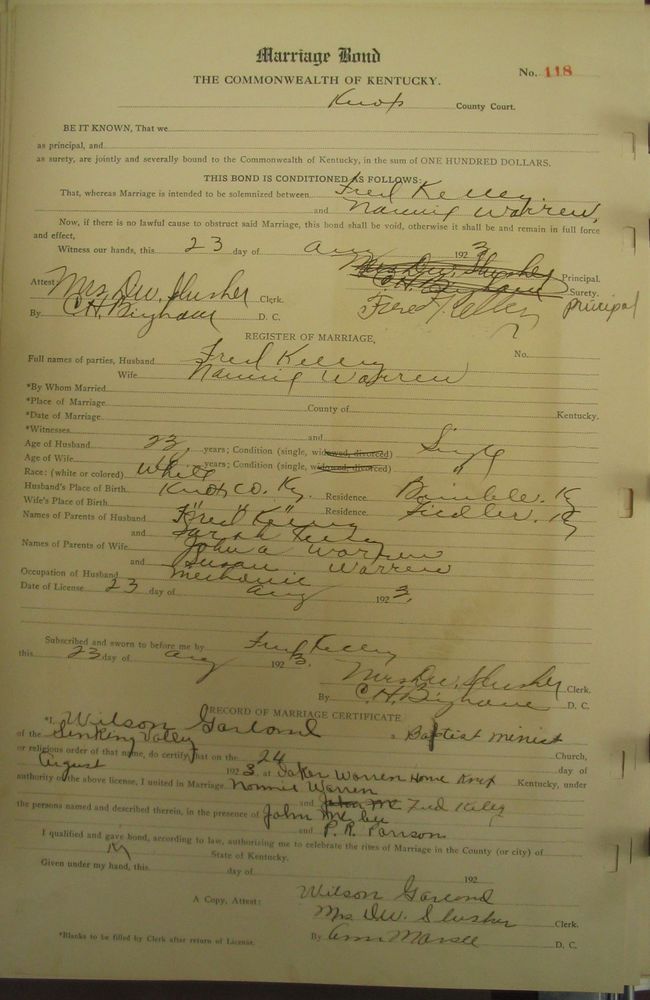 Marriage Bond
No. 118
THE COMMONWEALTH OF KENTUCKY.
Knox County Court.
BE IT KNOWN, That we
as principal, and
as surety, are jointly and severally bound to the Commonwealth of Kentucky, in the sum of ONE HUNDRED DOLLARS.
THIS BOND IS CONDITIONED AS FOLLOWS:
That, whereas Marriage is intended to be solemnized between Fred Kelley
and Nannie Warren,
Now, if there is no lawful cause to obstruct said Marriage, this bond shall be void, otherwise it shall be and remain in full force
and effect,
Witness our hands, this 23 day of Aug 1923
Mrs. D.W. Slusher Principal.
Attest Mrs. D.W. Slusher Clerk. C.H. Bingham Surety.
By C.H. Bingham D. C. Fred Kelley principal
REGISTER OF MARRIAGE,
Full names of parties, Husband Fred Kelley No.
Wife Nannie Warren
*By Whom Married
*Place of Marriage County of Kentucky.
*Date of Marriage
*Witnesses and
Age of Husband 23 years; Condition (single, widowed, divorced) Single
Age of Wife years; Condition (single, widowed, divorced) "
Race: (white or colored) White
Husband's Place of Birth Knox Co. Ky. Residence Bimble. Ky
Wife's Place of Birth " " Residence Fiedler. Ky
Names of Parents of Husband Fred Kelley
and Sarah Kelley
Names of Parents of Wife John A Warren
and Susan Warren
Occupation of Husband Mechanic
Date of License 23 day of Aug 1923.
Subscribed and sworn to before me by Fred Kelley
this 23 day of Aug 1923.
Mrs D.W. Slusher Clerk.
By C.H. Bingham D. C.
RECORD OF MARRIAGE CERTIFICATE
*I, Wilson Garland a Baptist minist
of the Sinking Valley Church,
or religious order of that name, do certify that on the 24 day of
August 1923. at Baker Warren Home Knox Kentucky, under
authority of the above license, I united in Marriage Nannie Warren
and Fred Kelley
the persons named and described therein, in the presence of John
and P.R.
I qualified and gave bond, according to law, authorizing me to celebrate the rites of Marriage in the County (or city) of
State of Kentucky.
Given under my hand, this day of 192
Wilson Garland
A Copy, Attest: Mrs. D.W. Slusher Clerk.
*Blanks to be filled by Clerk after return of License. By Ann D. C.